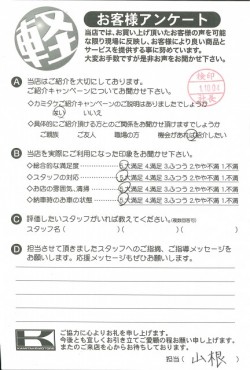 軽
お客様アンケート
当店では、お買い上げ頂いたお客様の声を可能
な限り現場に反映し、お客様により良い商品と
サービスを提供する事に努めています。
大変お手数ですが是非お声をお聞かせ下さい。
検印
社長
A 当店はご紹介を大切にしております。
ご紹介キャンペーンについてお聞かせ下さい。
◇カミタケご紹介キャンペーンのご説明はありましたでしょうか
はい いいえ
◇具体的にご紹介頂ける方とのご関係をお聞かせ頂けますでしょうか
ご親族 ご友人 職場の方 機会があれば紹介したい
B 当店を実際にご利用になった印象をお聞かせ下さい。
◇総合的な満足度 5.大満足 4.満足 3.ふつう 2.やや不満 1.不満
◇スタッフの対応 5.大満足 4.満足 3.ふつう 2.やや不満 1.不満
◇お店の雰囲気、清掃 5.大満足 4.満足 3.ふつう 2.やや不満 1.不満
◇納車時のお車の状態 5.大満足 4.満足 3.ふつう 2.やや不満 1.不満
C 評価したいスタッフがいれば教えてください。(複数回答可)
スタッフ名( )( )( )
D 担当させて頂きましたスタッフへのご指摘、ご指導メッセージを
お願いします。応援メッセージもぜひお願いします。
K
ご協力に心よりお礼を申し上げます。
今後とも宜しくお引き立てご愛顧の程お願い申し上げます。
またのご来店を心からお待ちしております。
担当( 山根 )